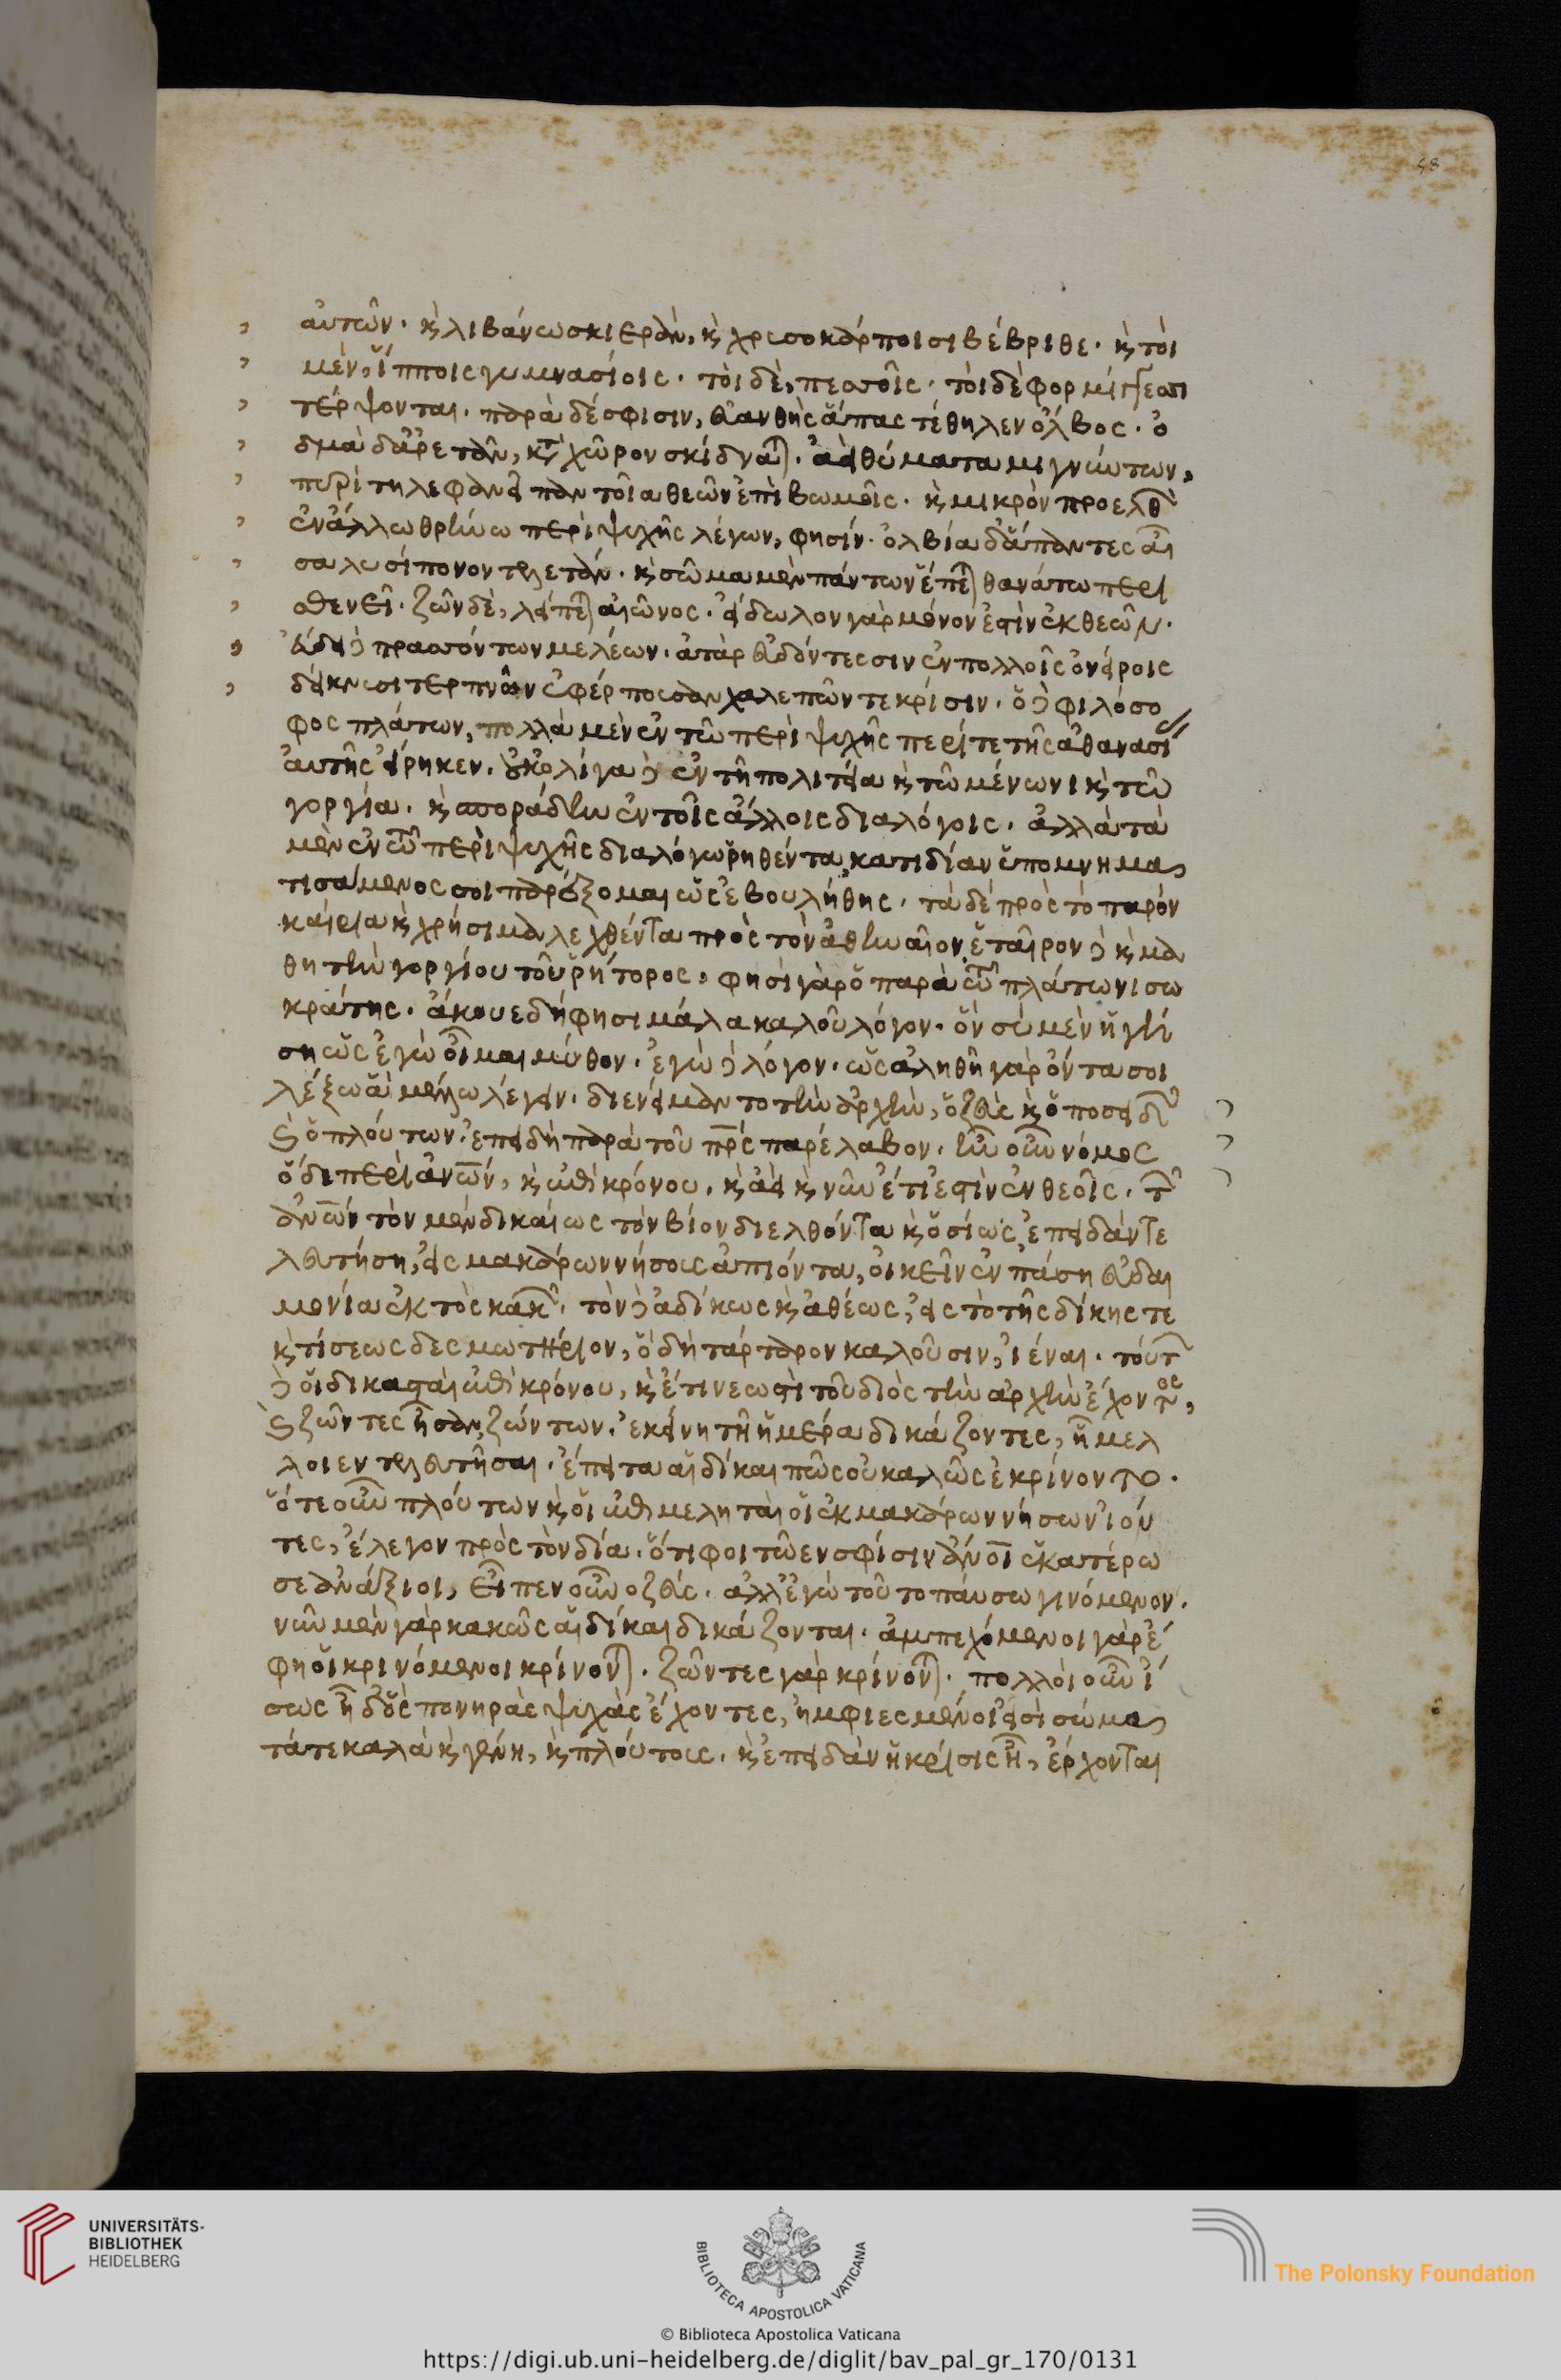 58
αὐτῶν. κ̀ λιβάνω σκιερὰν, κ̀ χρυσοκάρποισι βέβριθε. κ̀ τοὶ
μὲν, ἵπποις γυμνασίοις. τοὶ δὲ, πεσσοῖς. τοὶ δὲ φορμίγγεσσι
τέρψονται. παρὰ δέ σφισιν, εὐανθὴς ἅπας τέθηλεν ὄλβος. ὀ
δμὰ δ' ἄρετὰν, κατὰ χῶρον σκίδναται. ἀεὶ θύματα μιγνύντων,
πυρὶ τηλεφανεῖ παντοῖα θεῶν ἐπὶ βωμοῖς. κ̀ μικρὸν προελθὼν
ἐν ἄλλω θρήνω περὶ ψυχῆς λέγων, φησίν. ὀλβία δ' ἅπαντες αἶ
σα λυσίπονον τελετάν. κ̀ σῶμα μὲν πάντων ἕπεται θανάτω περι
σθενεῖ. ζῶν δὲ, λείπεται αἰῶνος. εἴδωλον γὰρ μόνον ἐστὶν ἐκ θεῶν.
εὕδει δὲ πρασσόντων μελέων. ἀτὰρ εὑδόντεσσιν ἐν πολλοῖς ὀνείροις
δείκνυσι τερπνῶν ἐφέρποισαν χαλεπῶν τε κρίσιν. ὁ δὲ φιλόσο
φος πλάτων, πολλὰ μὲν ἐν τῶ περὶ ψυχῆς περί τε τῆς ἀθανασί
αὐτῆς εἴρηκεν. οὐκ ὀλίγα δὲ ἐν τῆ πολιτεία κ̀ τῶ μένωνι κ̀ τῶ
γοργία. κ̀ σποράδην ἐν τοῖς ἄλλοις διαλόγοις. ἀλλὰ τὰ
μὲν ἐν τῶ περὶ ψυχῆς διαλόγω ῥηθέντα, κατ' ἰδίαν ὑπομνημα
τισάμενος σοι παρέξομαι ὡς ἐβουλήθης. τὰ δὲ πρὸς τὸ παρὸν
καίρια κ̀ χρήσιμα λεχθέντα πρὸς τὸν ἀθηναῖον, ἑταῖρον δὲ κ̀ μα
θητὴν γοργίου τοῦ ῥήτορος, φησὶ γὰρ ὁ παρὰ τῶ πλάτωνι σω
κράτης. ἄκουε δή φησι μάλα καλοῦ λόγον. ὃν σὺ μὲν ἡγή
ση ὡς ἐγὼ οἶμαι μῦθον. ἐγὼ δὲ λόγον. ὡς ἀληθῆ γὰρ ὄντα σοι
λέξω ἃ μέλλω λέγειν. διενείμαντο τὴν ἀρχὴν, ὁ ζεὺς κ̀ ὁ ποσειδῶν
κ̀ ὁ πλούτων, ἐπειδὴ παρὰ τοῦ πρς παρέλαβον. ἦν οὖν νόμος
ὅδε περὶ ἀνων, κ̀ ἐπὶ κρόνου, κ̀ ἀεὶ κ̀ νῦν ἔτι ἐστὶν ἐν θεοῖς. τῶν
ἀνων τὸν μὲν δικαίως τὸν βίον διελθόντα κ̀ ὁσίως, ἐπειδὰν τε
λευτήση, εἰς μακάρων νήσους ἀπιόντα, οἰκεῖν ἐν πάση εὐδαι
μονία ἐκτὸς κακῶν. τὸν δὲ ἀδίκως κ̀ ἀθέως, εἰς τὸ τῆς δίκης τε
κ̀ τίσεως δεσμωτήριον, ὃ δὴ τάρταρον καλοῦσιν, ἰέναι. τούτων
δὲ οἱ δικασταὶ ἐπὶ κρόνου, κ̀ ἔτι νεωστὶ τοῦ διὸς τὴν ἀρχὴν ἔχοντος,
κ̀ ζῶντες ἦσαν, ζώντων. ἐκείνη τῆ ἡμέρα δικάζοντες, ἧ μελ
λοιεν τελευτῆσαι. ἔπειτα αἱ δίκαι πῶς οὐ καλῶς ἐκρίνοντο.
ὅτε οὖν πλούτων κ̀ οἱ ἐπιμεληταὶ οἱ ἐκ μακάρων νήσων ἰόν
τες, ἔλεγον πρὸς τὸν δία. ὅτι φοιτῶεν σφίσιν ἀνοι ἑκατέρω
σε ἀνάξιοι, εἶπεν οὖν ο ζεύς. ἀλλ' ἐγὼ τοῦτο παύσω γινόμενον.
νῦν μὲν γὰρ κακῶς αἱ δίκαι δικάζονται. ἀμπεχόμενοι γὰρ ἔ
φη οἱ κρινόμενοι κρίνονται. ζῶντες γὰρ κρίνονται. πολλοὶ οὖν ἴ
σως ἦ δ' ὃς πονηρὰς ψυχὰς ἔχοντες, ἠμφιεσμένοι εἰσὶ σώμα
τά τε καλὰ κ̀ γένη, κ̀ πλούτους. κ̀ ἐπειδὰν ἡ κρίσις ἦ, ἔρχονται
UNIVERSITÄTS-
BIBLIOTHEK
HEIDELBERG
BIBLIOTECA APOSTOLICA VATICANA
The Polonsky Foundation
© Biblioteca Apostolica Vaticana
https://digi.ub.uni-heidelberg.de/diglit/bav_pal_gr_170/0131